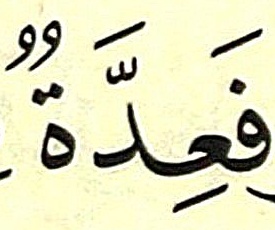 فَعِدَّةٌ